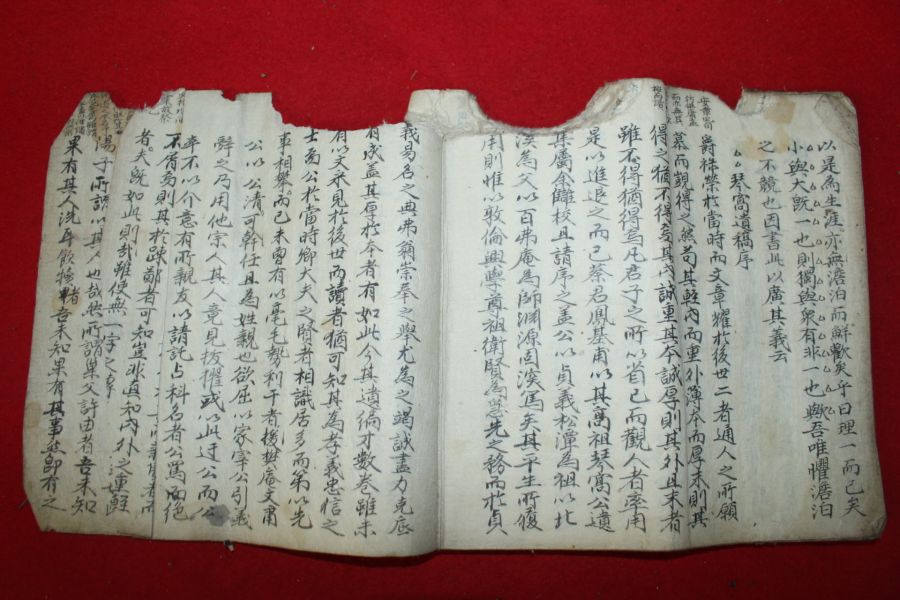 以是爲生涯亦無澹泊而鮮歡矣乎曰理一而已矣
小與大旣一也則獨與衆有非一也歟吾唯懼澹泊
之不競也因書此以廣其義云
琴窩遺稿序
爵祿榮於當時而文章耀於後世二者通人之所願
慕而覬得之然苟其輕內而重外薄本而厚末則其
得之猶不得焉其內誠重其本誠厚則其外且末者
雖不得猶得焉凡君子之所以省己而觀人者率用
是以進退之而已蔡君鳳基甫以其高祖琴窩公遺
集屬余讎校且請序之盖公以貞義松潭爲祖以北
溪爲父以百弗庵爲師淵源固深焉矣其平生所服
用則惟以敦倫興學尊祖衛賢爲急先之務而於貞
義易名之典弗翁宗奉之擧尤爲之竭誠盡力克底
有成盖其厚於本者有如此今其遺編才數卷雖未
有以文采見於後世而讀者猶可知其爲孝義忠信之
士爲公於當時鄉大夫之賢者相識居多而第以先
事相擧而已未嘗有以毫毛勢利干者樊庵文肅
公以公淸可幹任且爲姓親也欲屈以家宰公引義
辭之乃用他宗人其人竟見拔擢或以此過公而公
卒不以介意有所親友以請託占科名者公罵而絶
不齒焉則其於踈鄙者可知豈非眞知內外之重輕
者夫旣如此則哉雖使無一字之
陽子所謂以其人也哉然所謂巢父許由者吾未知
果有其人洗耳飮犢者吾未知果有其事然卽有之